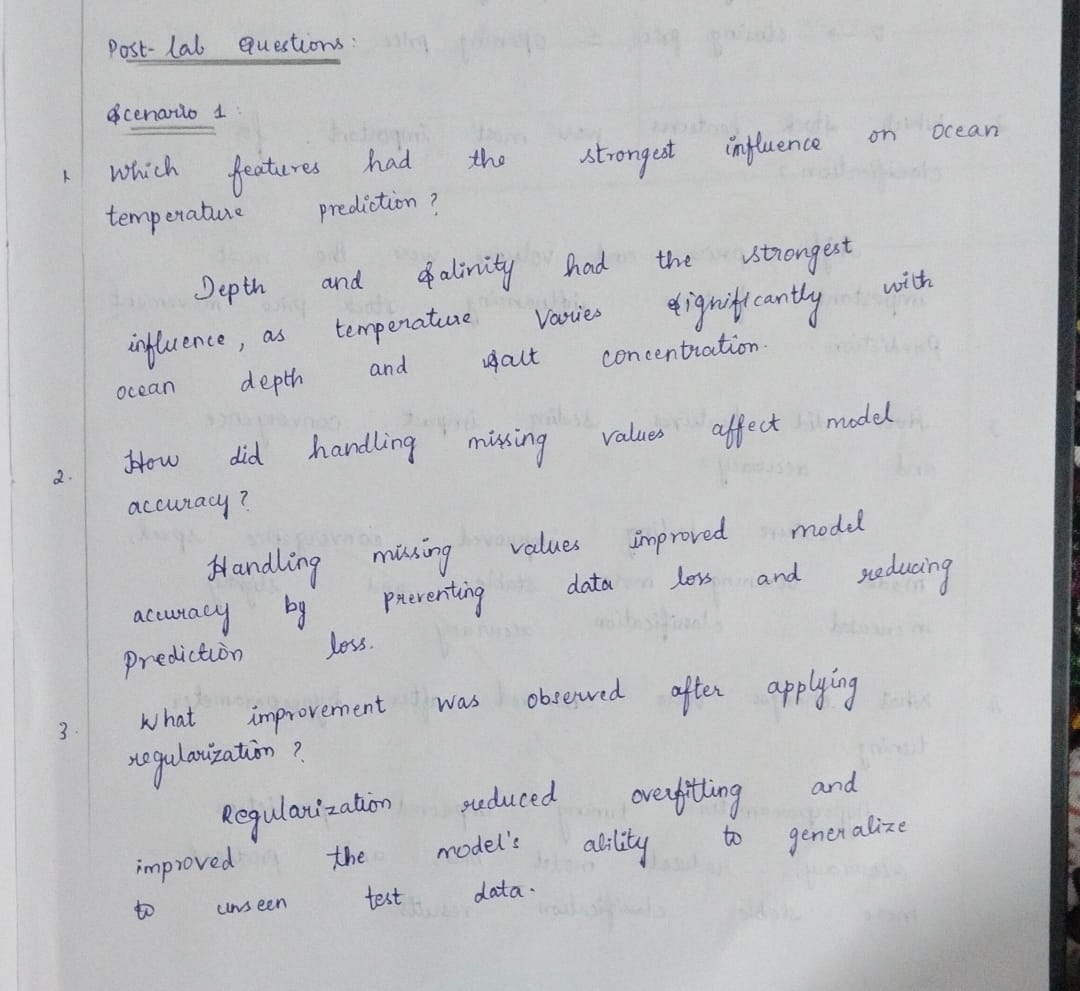 Post-lab Questions:
Scenario 1:
1. Which features had the strongest influence on ocean
temperature prediction?
Depth and Salinity had the strongest
influence, as temperature varies significantly with
ocean depth and salt concentration.
2. How did handling missing values affect model
accuracy?
Handling missing values improved model
accuracy by preventing data loss and reducing
prediction loss.
3. What improvement was observed after applying
regularization?
Regularization reduced overfitting and
improved the model's ability to generalize
to unseen test data.